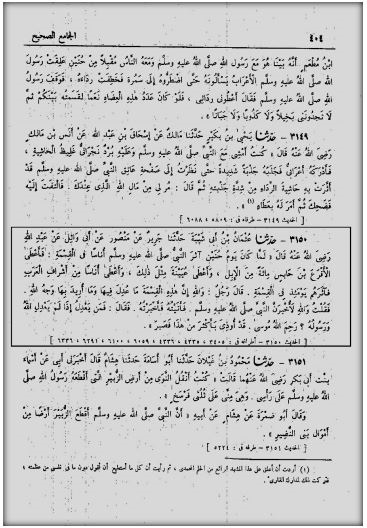 ٤٠٤ الجامع الصحيح
ابن مُطعِم أنَّهُ بَيْنَا هُوَ مَعَ رَسولِ الله صلَّى اللهُ عليهِ وسلَّم ومَعَهُ النَّاسُ مُقبِلاً مِن حُنَيْنٍ عَلِقَتْ رَسولَ
الله صلَّى اللهُ عليهِ وسلَّم الأعْرابُ يَسألونَهُ حتَّى اضطَرُّوهُ إلى سَمُرةٍ فخَطِفَتْ رِداءَهُ، فوَقَفَ رَسولُ
الله صلَّى اللهُ عليهِ وسلَّم فقالَ أعطوني رِدائي، فلو كانَ عَدَدُ هذهِ العِضاهِ نَعَماً لقَسَمتُهُ بينَكم ثمَّ
لا تَجِدونَني بَخيلاً ولا كَذوباً ولا جَباناً » .
٣١٤٩ – حدثنا يَحيى بنُ بُكَيرٍ حدَّثَنا مالكٌ عن إسحاقَ بنِ عبدِ الله عن أنَسِ بنِ مالكٍ
رَضِيَ اللهُ عنهُ قالَ « كنتُ أمشي معَ النَّبيِّ صلَّى اللهُ عليهِ وسلَّم وعَلَيهِ بُرْدٌ نَجْرانيٌّ غَليظُ الحاشِيةِ ،
فأدرَكَهُ أعرابيٌّ فجَذَبَهُ جَذبةً شَديدةً حتَّى نَظَرتُ إلى صَفحةِ عاتِقِ النَّبيِّ صلَّى اللهُ عليهِ وسلَّم قد
أثَّرَتْ بهِ حاشِيةُ الرِّداءِ من شِدَّةِ جَذبَتِهِ ثمَّ قالَ : مُرْ لي مِن مالِ اللهِ الَّذي عِندَكَ . فالتَفَتَ إليهِ
فضَحِكَ ثمَّ أمَرَ لهُ بعَطاءٍ (١)
[ الحديث ٣١٤٩ – طرفاه في : ٥٨٠٩ ، ٦٠٨٨ ]
٣١٥٠ – حدثنا عُثمانُ بنُ أبي شَيبةَ حدَّثَنا جَريرٌ عن مَنصورٍ عن أبي وائلٍ عن عبدِ الله
رَضِيَ اللهُ عنهُ قالَ « لمَّا كانَ يومُ حُنَينٍ آثَرَ النَّبيُّ صلَّى اللهُ عليهِ وسلَّم أُناساً في القِسْمةِ : فأعطى
الأقرَعَ بنَ حابِسٍ مائةً مِنَ الإبِلِ ، وأعطى عُيَينةَ مِثلَ ذلِكَ ، وأعطى أُناساً مِن أشرافِ العَرَبِ
فآثَرَهم يومَئذٍ في القِسْمةِ . قالَ رَجُلٌ : واللهِ إنَّ هذهِ القِسْمةَ ما عُدِلَ فيها وما أُريدَ بها وَجهُ الله .
فقُلتُ واللهِ لأُخبِرَنَّ النَّبيَّ صلَّى اللهُ عليهِ وسلَّم . فأتَيتُهُ فأخبَرتُهُ . فقالَ : فمَن يَعدِلُ إذا لم يَعدِلِ اللهُ
ورَسولُهُ ؟ رَحِمَ اللهُ موسى . قد أُوذِيَ بأكثَرَ مِن هذا فصَبَرَ » .
[ الحديث ٣١٥٠ – أطرافه في : ٣٤٠٥ ، ٤٣٣٥ ، ٤٣٣٦ ، ٦٠٥٩ ، ٦١٠٠ ، ٦٢٩١ ، ٦٣٣٦ ]
٣١٥١ – حدثنا مَحمودُ بنُ غَيلانَ حدَّثَنا أبو أُسامةَ حدَّثَنا هِشامٌ قالَ أخبَرَني أبي عن أسماءَ
بنتِ أبي بكرٍ رَضِيَ اللهُ عنهُما قالَتْ « كنتُ أنقُلُ النَّوَى مِن أرضِ الزُّبَيرِ الَّتي أقطَعَهُ رَسولُ الله صلَّى
اللهُ عليهِ وسلَّم على رَأسي . وهيَ مِنِّي على ثُلُثَي فَرْسَخٍ »
وقالَ أبو ضَمْرةَ عن هِشامٍ عن أبيهِ « أنَّ النَّبيَّ صلَّى اللهُ عليهِ وسلَّم أقطَعَ الزُّبَيرَ أرضاً مِن
أموالِ بَني النَّضيرِ » .
[ الحديث ٣١٥١ – طرفه في : ٥٢٢٤ ]
(١) أردت أن أعلق على هذا المشهد الرائع من الحلم المحمدي ، ثم رأيت أن كل ما أستطيع أن أقوله دون ما في نفسي من عظمته ،
فتركت ذلك لمدارك القارئ .